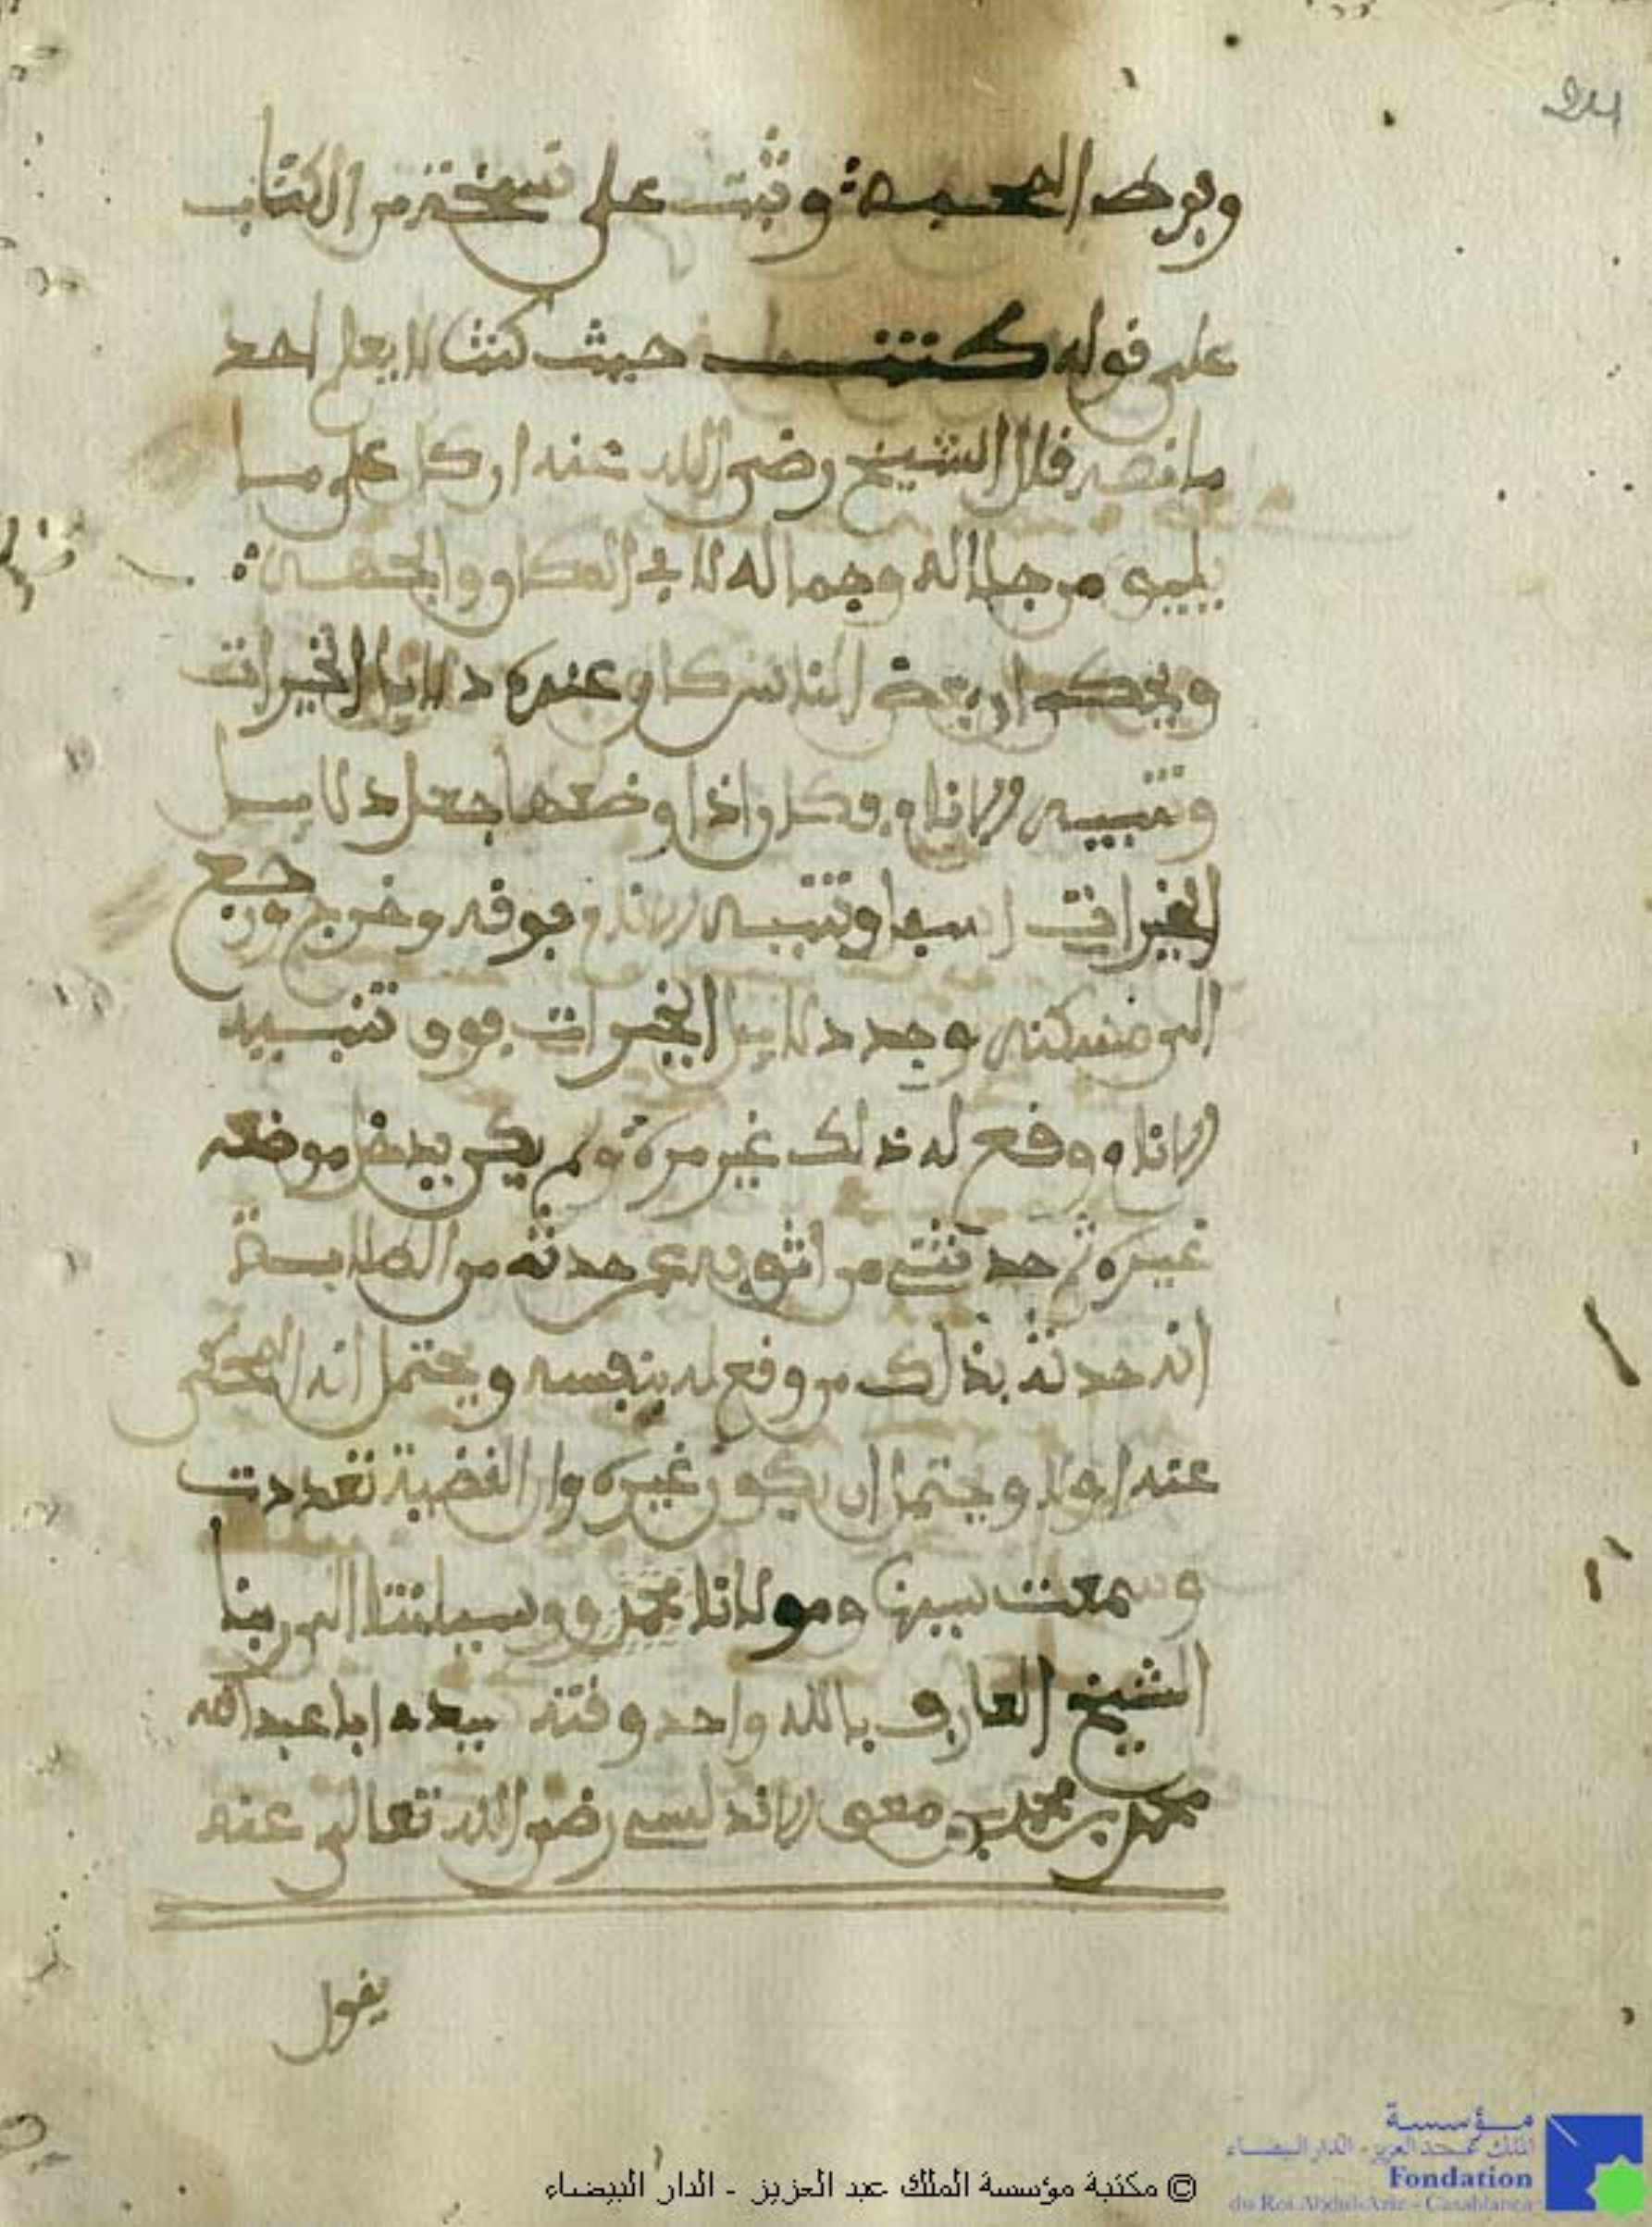 24
وفرط المحبة وثبت على نسخة من الكتاب
على قوله كنت حيث كنت لا يعلم احد
ما نصه فال الشيخ رضي الله عنه اي كان على ما
يليق من جلاله وجماله لا في المكان والجهة
ويحكى ان بعض الناس كان عنده دلائل الخيرات
وتنبيه الانام وكان اذا وضعها جعل دلائل
الخيرات اسفل وتنبيه الانام فوقه وخرج ورجع
الى مسكنه وجد دلائل الخيرات فوق تنبيه
الانام وقع له ذلك غير مرة ولم يكن يدخل موضعه
غيره ثم حدثني من اثق به عمن حدثه من الطلبة
انه حدثه بذلك من وقع له بنفسه ويحتمل انه المحكي
عنه اولا ويحتمل ان يكون غيره وان القضية تعددت
وسمعت سيدنا ومولانا محمد ووسيلتنا الى ربنا
الشيخ العارف بالله واحد وقته سيدي ابا عبد الله
محمد بن محمد بن معن الاندلسي رضي الله تعالى عنه
يفول
© مكتبة مؤسسة الملك عبد العزيز - الدار البيضاء
مؤسسة
الملك عبد العزيز - الدار البيضاء
Fondation
du Roi Abdul-Aziz - Casablanca